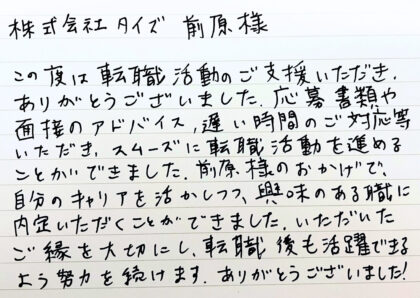 株式会社タイズ 前原様
この度は転職活動のご支援いただき、
ありがとうございました。応募書類や
面接のアドバイス、遅い時間のご対応等
いただき、スムーズに転職活動を進める
ことができました。前原様のおかげで、
自分のキャリアを活かしつつ、興味のある職に
内定いただくことができました。いただいた
ご縁を大切にし、転職後も活躍できる
よう努力を続けます。ありがとうございました!